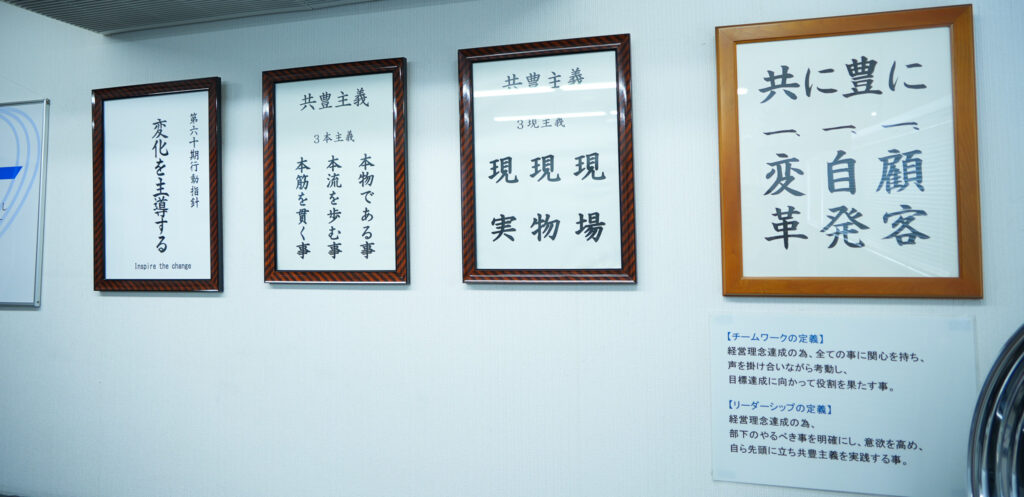 第六十期行動指針
変化を主導する
Inspire the change
共豊主義
3本主義
本物である事
本流を歩む事
本筋を貫く事
共豊主義
3現主義
現場
現物
現実
共に豊に
一、顧客
一、自発
一、変革
【チームワークの定義】
経営理念達成の為、全ての事に関心を持ち、
声を掛け合いながら考動し、
目標達成に向かって役割を果たす事。
【リーダーシップの定義】
経営理念達成の為、
部下のやるべき事を明確にし、意欲を高め、
自ら先頭に立ち共豊主義を実践する事。